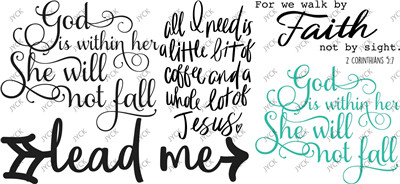 God
is within her
She will
not fall
all I need is
a little bit of
coffee and a
whole lot of
Jesus
For we walk by
Faith
not by sight.
2 CORINTHIANS 5:7
God
is within her
She will
not fall
lead me